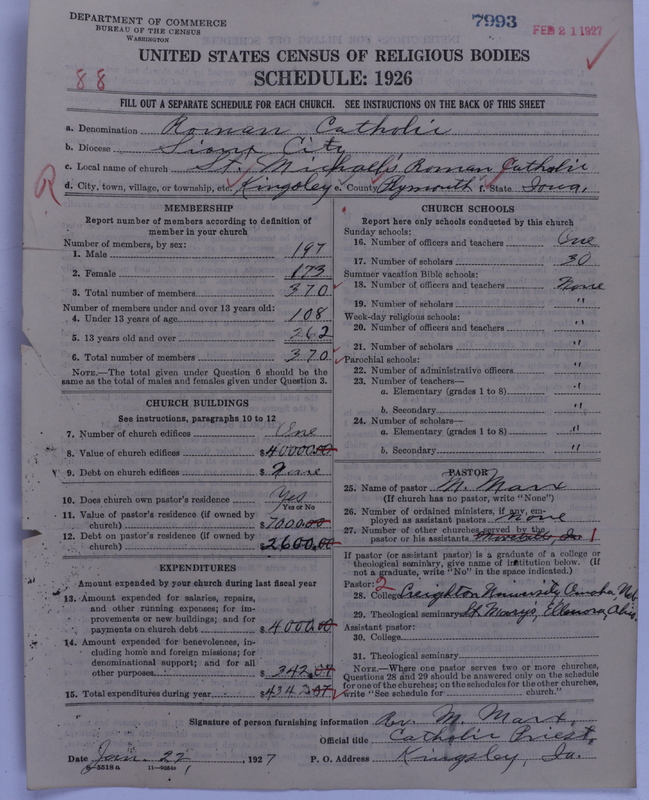 DEPARTMENT OF COMMERCE
BUREAU OF THE CENSUS
WASHINGTON
7993
FEB 21 1927
UNITED STATES CENSUS OF RELIGIOUS BODIES
SCHEDULE: 1926
88
FILL OUT A SEPARATE SCHEDULE FOR EACH CHURCH. SEE INSTRUCTIONS ON THE BACK OF THIS SHEET
a. Denomination Roman Catholic
b. Diocese Sioux City
c. Local name of church St. Michael's Roman Catholic
R
d. City, town, village, or township, etc. Kingsley e. County Plymouth f. State Iowa.
MEMBERSHIP
Report number of members according to definition of
member in your church
Number of members, by sex:
1. Male 197
2. Female 173
3. Total number of members 370
Number of members under and over 13 years old:
4. Under 13 years of age 108
5. 13 years old and over 262
6. Total number of members 370
NOTE.—The total given under Question 6 should be
same as the total of males and females given under Question 3.
CHURCH BUILDINGS
See instructions, paragraphs 10 to 12
7. Number of church edifices One
8. Value of church edifices $40000.00
9. Debt on church edifices $ None
10. Does church own pastor's residence Yes
Yes or No
11. Value of pastor's residence (if owned by
church) $7000.00
12. Debt on pastor's residence (if owned by
church) $2600.00
EXPENDITURES
Amount expended by your church during last fiscal year
13. Amount expended for salaries, repairs,
and other running expenses; for im-
provements or new buildings; and for
payments on church debt $4000.00
14. Amount expended for benevolences, in-
cluding home and foreign missions; for
denominational support; and for all
other purposes $342.07
15. Total expenditures during year $4342.07
CHURCH SCHOOLS
Report here only schools conducted by this church
Sunday schools:
16. Number of officers and teachers One
17. Number of scholars 30
Summer vacation Bible schools:
18. Number of officers and teachers None
19. Number of scholars "
Week-day religious schools:
20. Number of officers and teachers "
21. Number of scholars "
Parochial schools:
22. Number of administrative officers "
23. Number of teachers—
a. Elementary (grades 1 to 8) "
b. Secondary "
24. Number of scholars—
a. Elementary (grades 1 to 8) "
b. Secondary "
PASTOR
25. Name of pastor M. Marx
(If church has no pastor, write "None")
26. Number of ordained ministers, if any, em-
ployed as assistant pastors None
27. Number of other churches served by the
pastor or his assistants 1
If pastor (or assistant pastor) is a graduate of a college or
theological seminary, give name of institution below. (If
not a graduate, write "No" in the space indicated.)
Pastor: 2
28. College Creighton University Omaha, Neb.
29. Theological seminary St. Mary's,
Assistant pastor:
30. College
31. Theological seminary
NOTE.—Where one pastor serves two or more churches,
Questions 28 and 29 should be answered only on the schedule
for one of the churches; on the schedules for the other churches,
write "See schedule for church."
Signature of person furnishing information Rev. M. Marx,
Official title Catholic Priest,
Date Jan. 22, 1927 P. O. Address Kingsley, Ia.